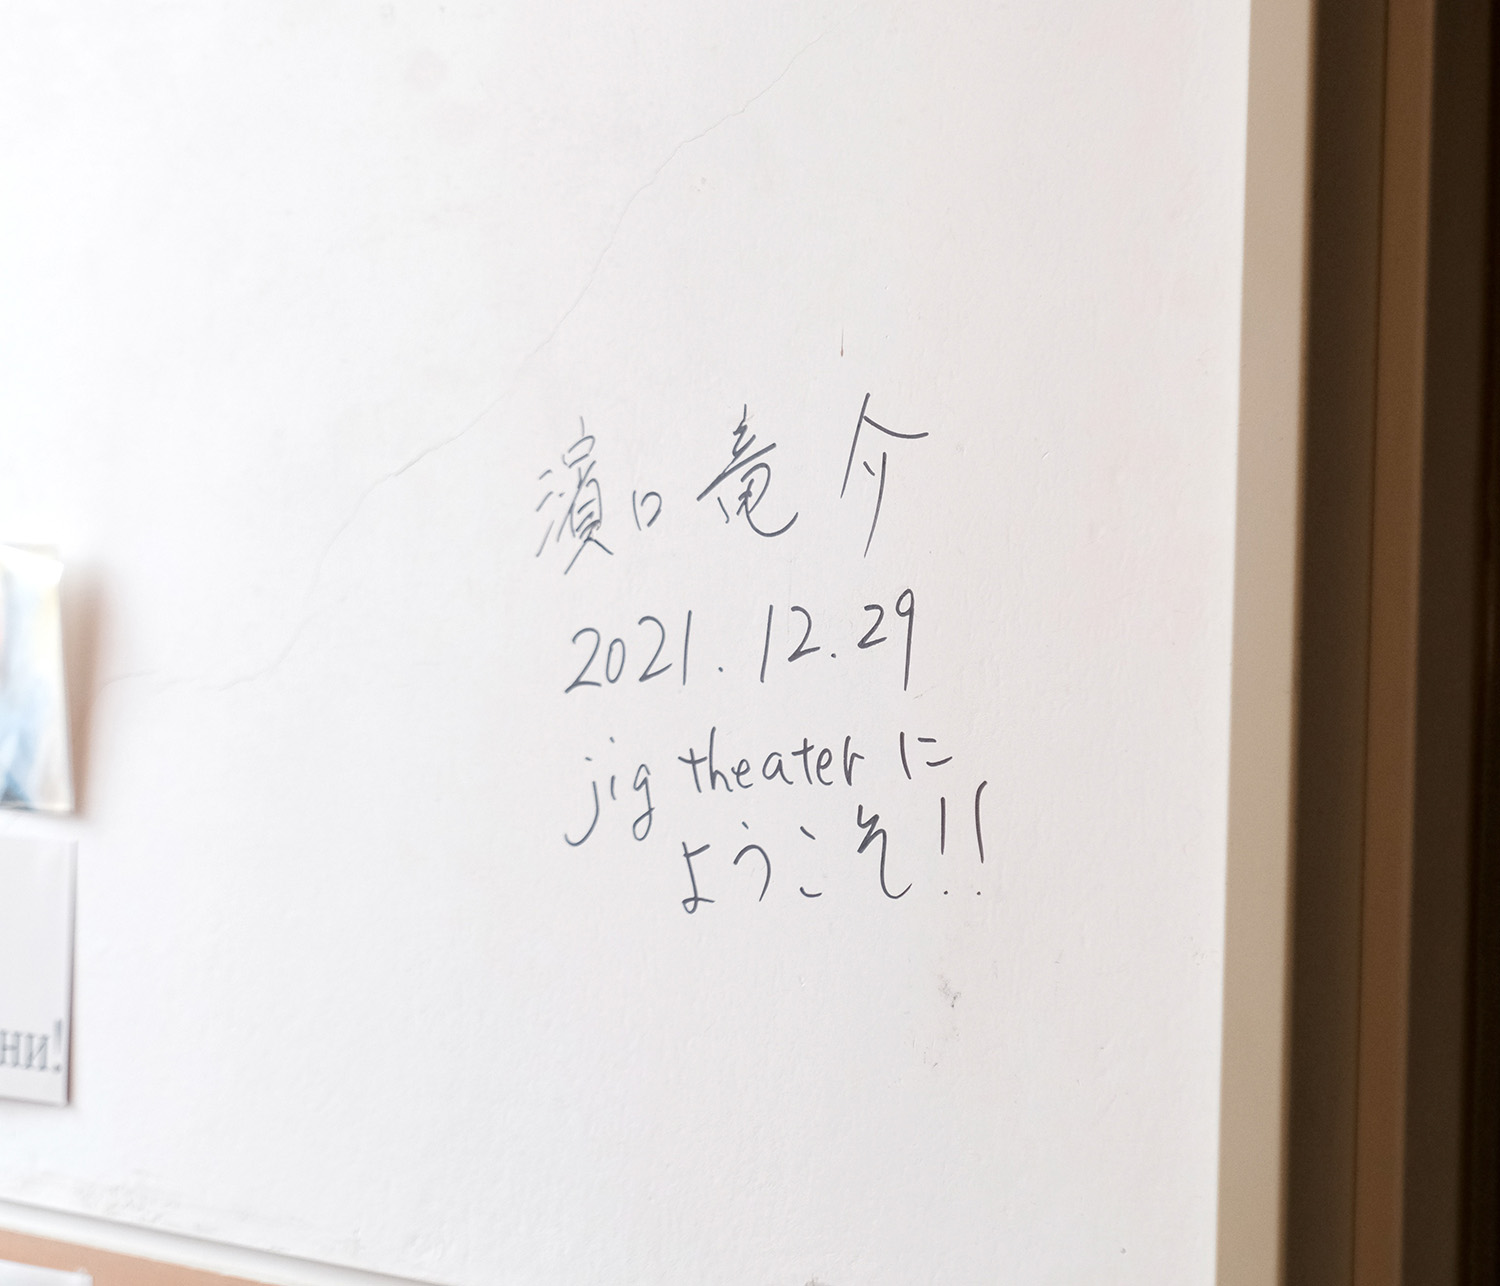 濱口竜介
2021.12.29
jig theater に
ようこそ!!
ни!